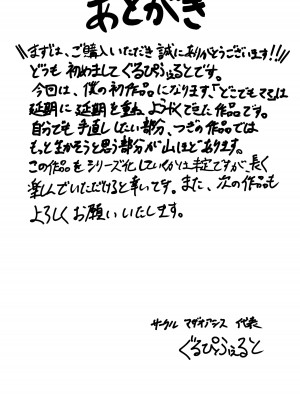 あとがき
まずは、ご購入いただき誠にありがとうございます!!
どうも初めましてぐるぴふぇるとです。
今回は、僕の初作品になります、「どこでもでるは
延期に延期を重ね、ようやくできた作品です。
自分でも手直ししたい部分、つぎの作品では
もっと生かそうと思う部分が山ほどあります。
この作品をシリーズ化していくかは未定ですが、長く
楽しんでいただけると幸いです。また、次の作品も
よろしくお願いいたします。
サークル マダオアシス 代表
ぐるぴふぇると